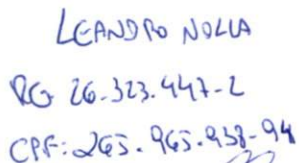 LEANDRO NOLLA
RG 26.323.447-2
CPF: 265.965.938-94